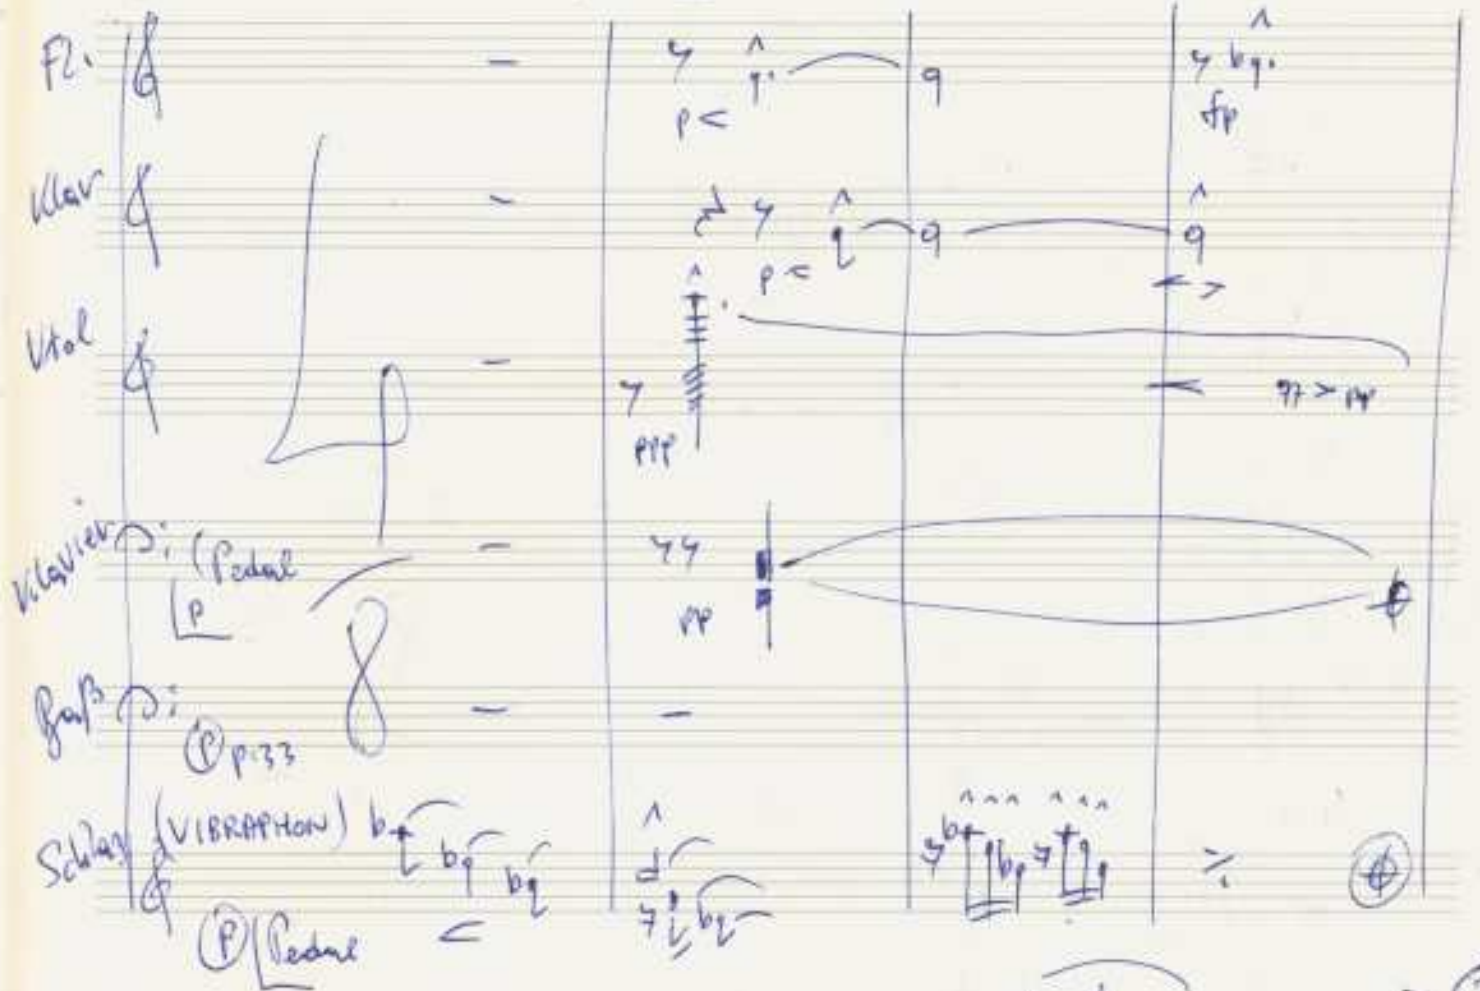 Fl.
p <
fp
Klar
p <
Viol
ppp
pp
Klavier
(Pedal
p
pp
4
8
Baß
P pizz
Schlag
(VIBRAPHON)
P Pedal